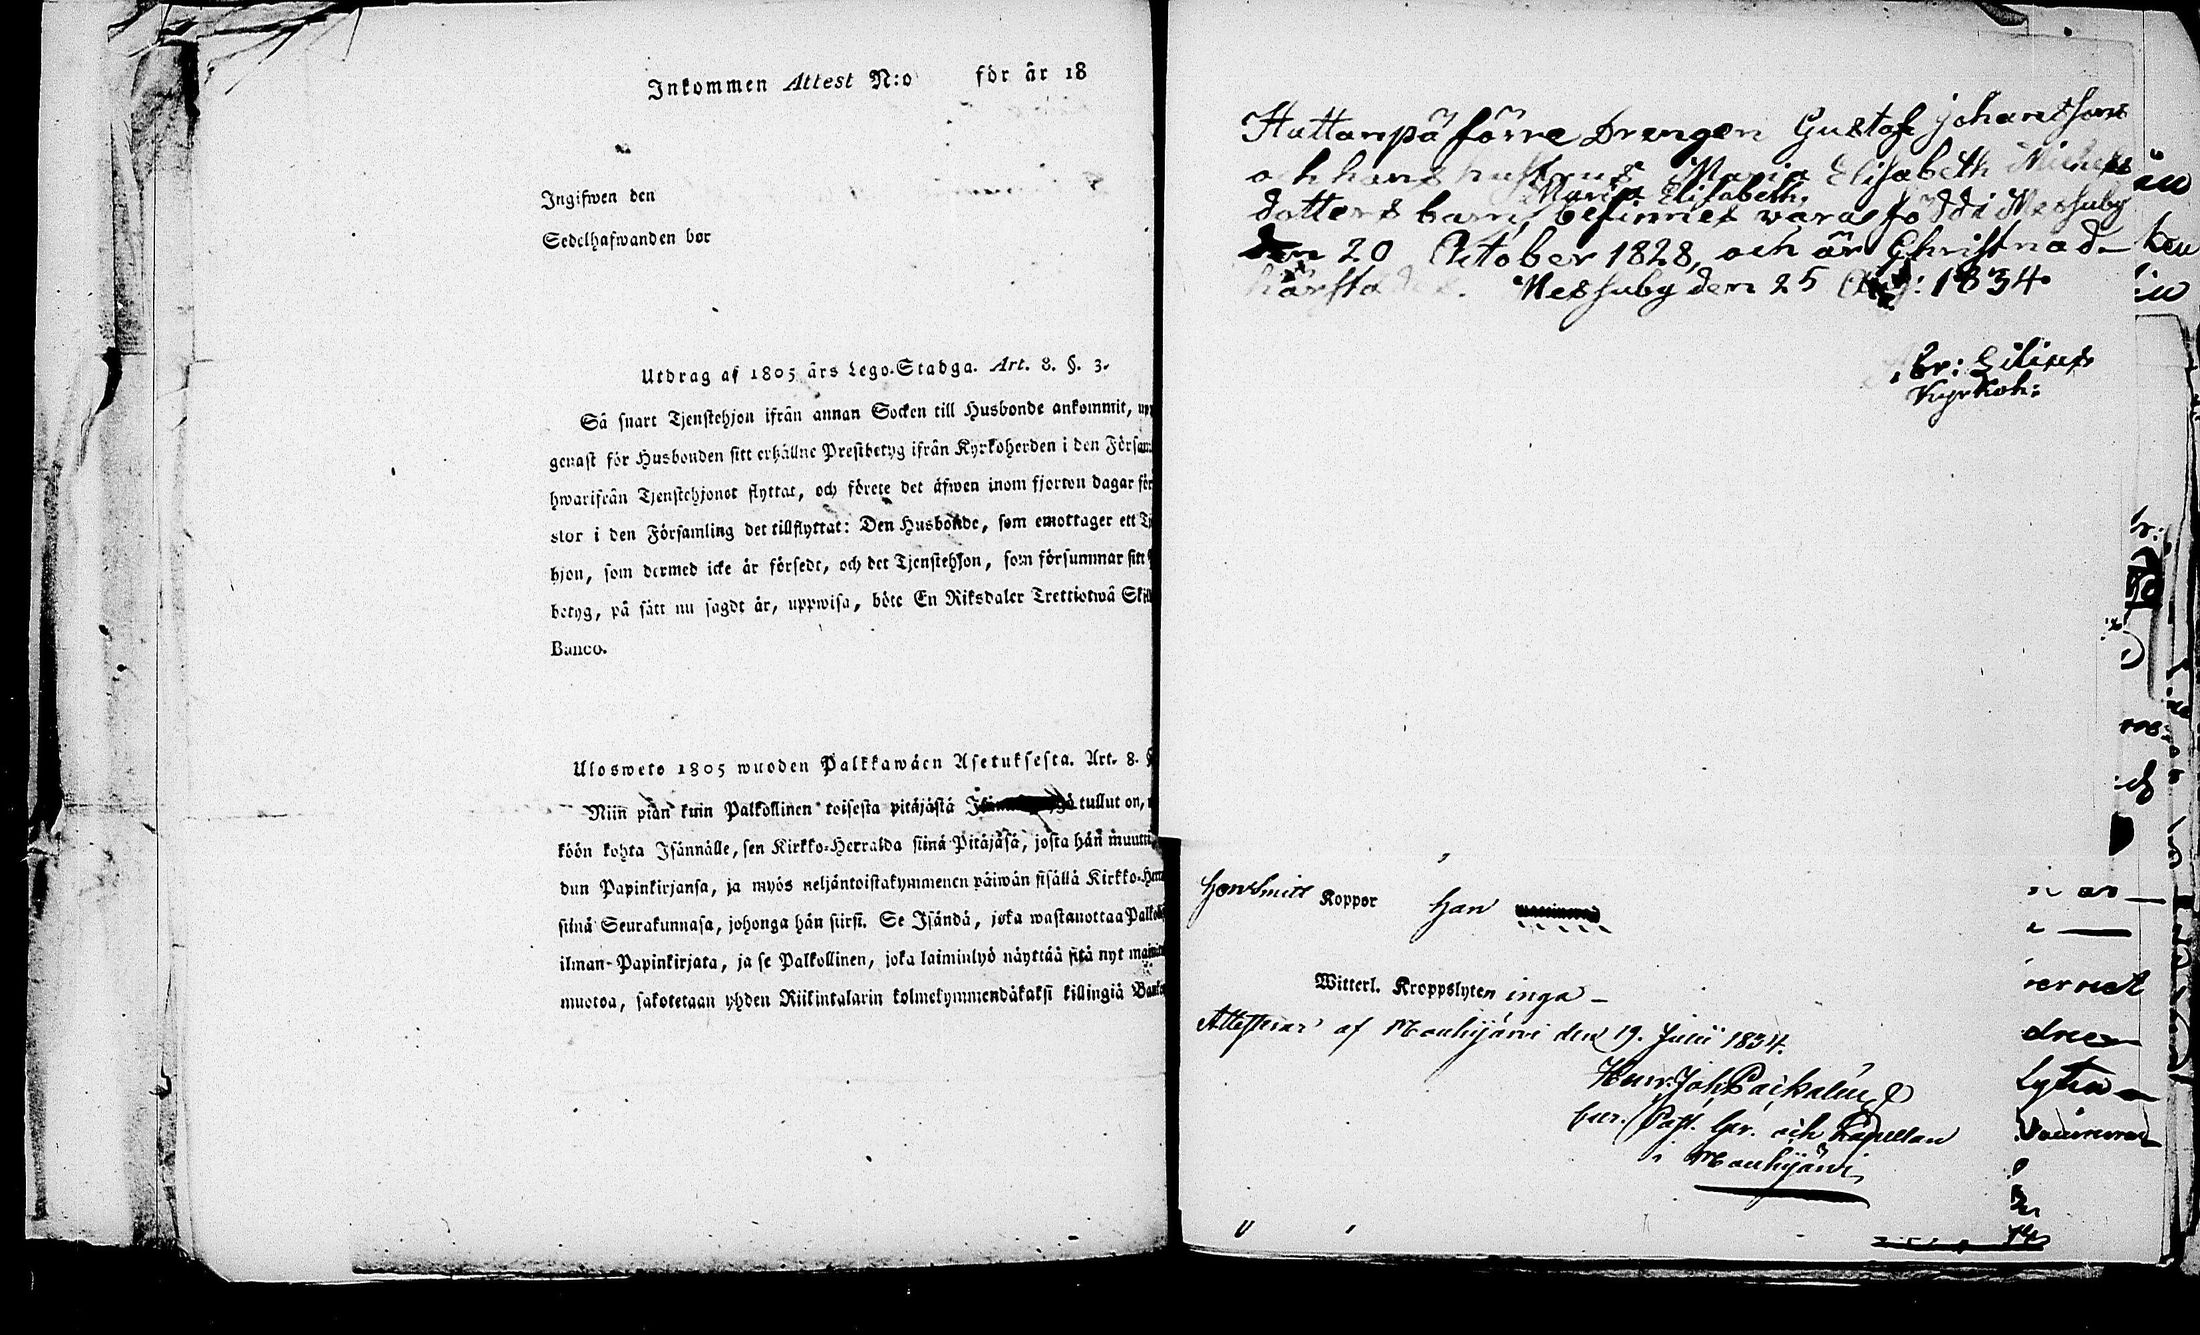 Inkommen Attest N:o för år 18
Ingifwen den
Sedelhafwanden bor
Utdrag af 1805 års Lego-Stadga. Art. 8. §. 3.
Så snart Tjenstehjon ifrån annan Socken till Husbonde ankommit, upp
genast för Husbonden sitt erhållne Prestbetyg ifrån Kyrkoherden i den Försam
hwarifrån Tjenstehjonet flyttat, och förete det äfwen inom fjorton dagar för
stor i den Församling det tillflyttat: Den Husbonde, som emottager ett Tj
hjon, som dermed icke är försedt, och det Tjenstehjon, som försummar sitt
betyg, på sätt nu sagdt är, uppwisa, böte En Riksdaler Trettiotwå Skill
Banco.
Ulosweto 1805 wuoden Palkkawäen Asetuksesta. Art. 8. §
Niin pian kuin Palkollinen toisesta pitäjästä tullut on,
köön kohta Isännälle, sen Kirkko-Herralda siinä Pitäjäsä, josta hän muutti
dun Papinkirjansa, ja myös neljäntoistakymmenen päiwän sisällä Kirkko-Herra
siinä Seurakunnasa, johonga hän siirsi. Se Isändä, joka wastanottaa Palkoll
ilman Papinkirjata, ja se Palkollinen, joka laiminlyö näyttää sitä nyt main
muotoa, sakotetaan yhden Riikintalarin kolmekymmendäkaksi killingiä Banko
Huttanpä förre Drengen Gustaf Johansson
och hans hustrus Maria Elisabeth Michels
Maria Elisabeth,
dotters barn, befinnes vara född i Messuby
den 20 October 1828, och är Christnad
härstädes. Messuby den 25 Aug: 1834
Abr: Lilius
Kyrkoh:
Koppor han
Witterl. Kroppslyten inga
Attesterar af Mouhijärvi den 19. Junii 1834.
Henr. Joh. 
Past. och Kapellan
i Mouhijärvi